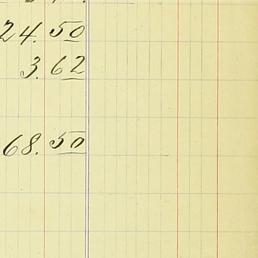 24.50
3.62
68.50